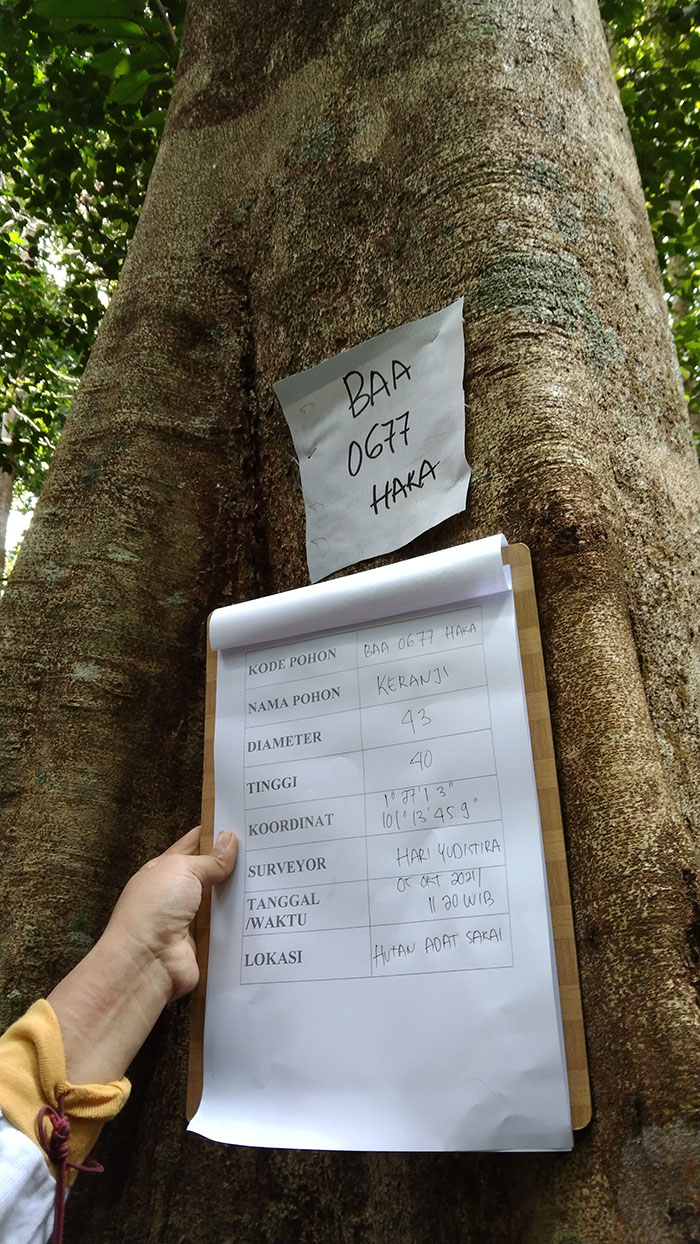 BAA
0677
HAKA
KODE POHON BAA 0677 HAKA
NAMA POHON KERANJI
DIAMETER 43
TINGGI 40
KOORDINAT 1° 27' 1 3"
101° 13' 45.9"
SURVEYOR HARI YUDISTIRA
TANGGAL 05 OKT 2021/
/WAKTU 11 20 WIB
LOKASI HUTAN ADAT SAKAI